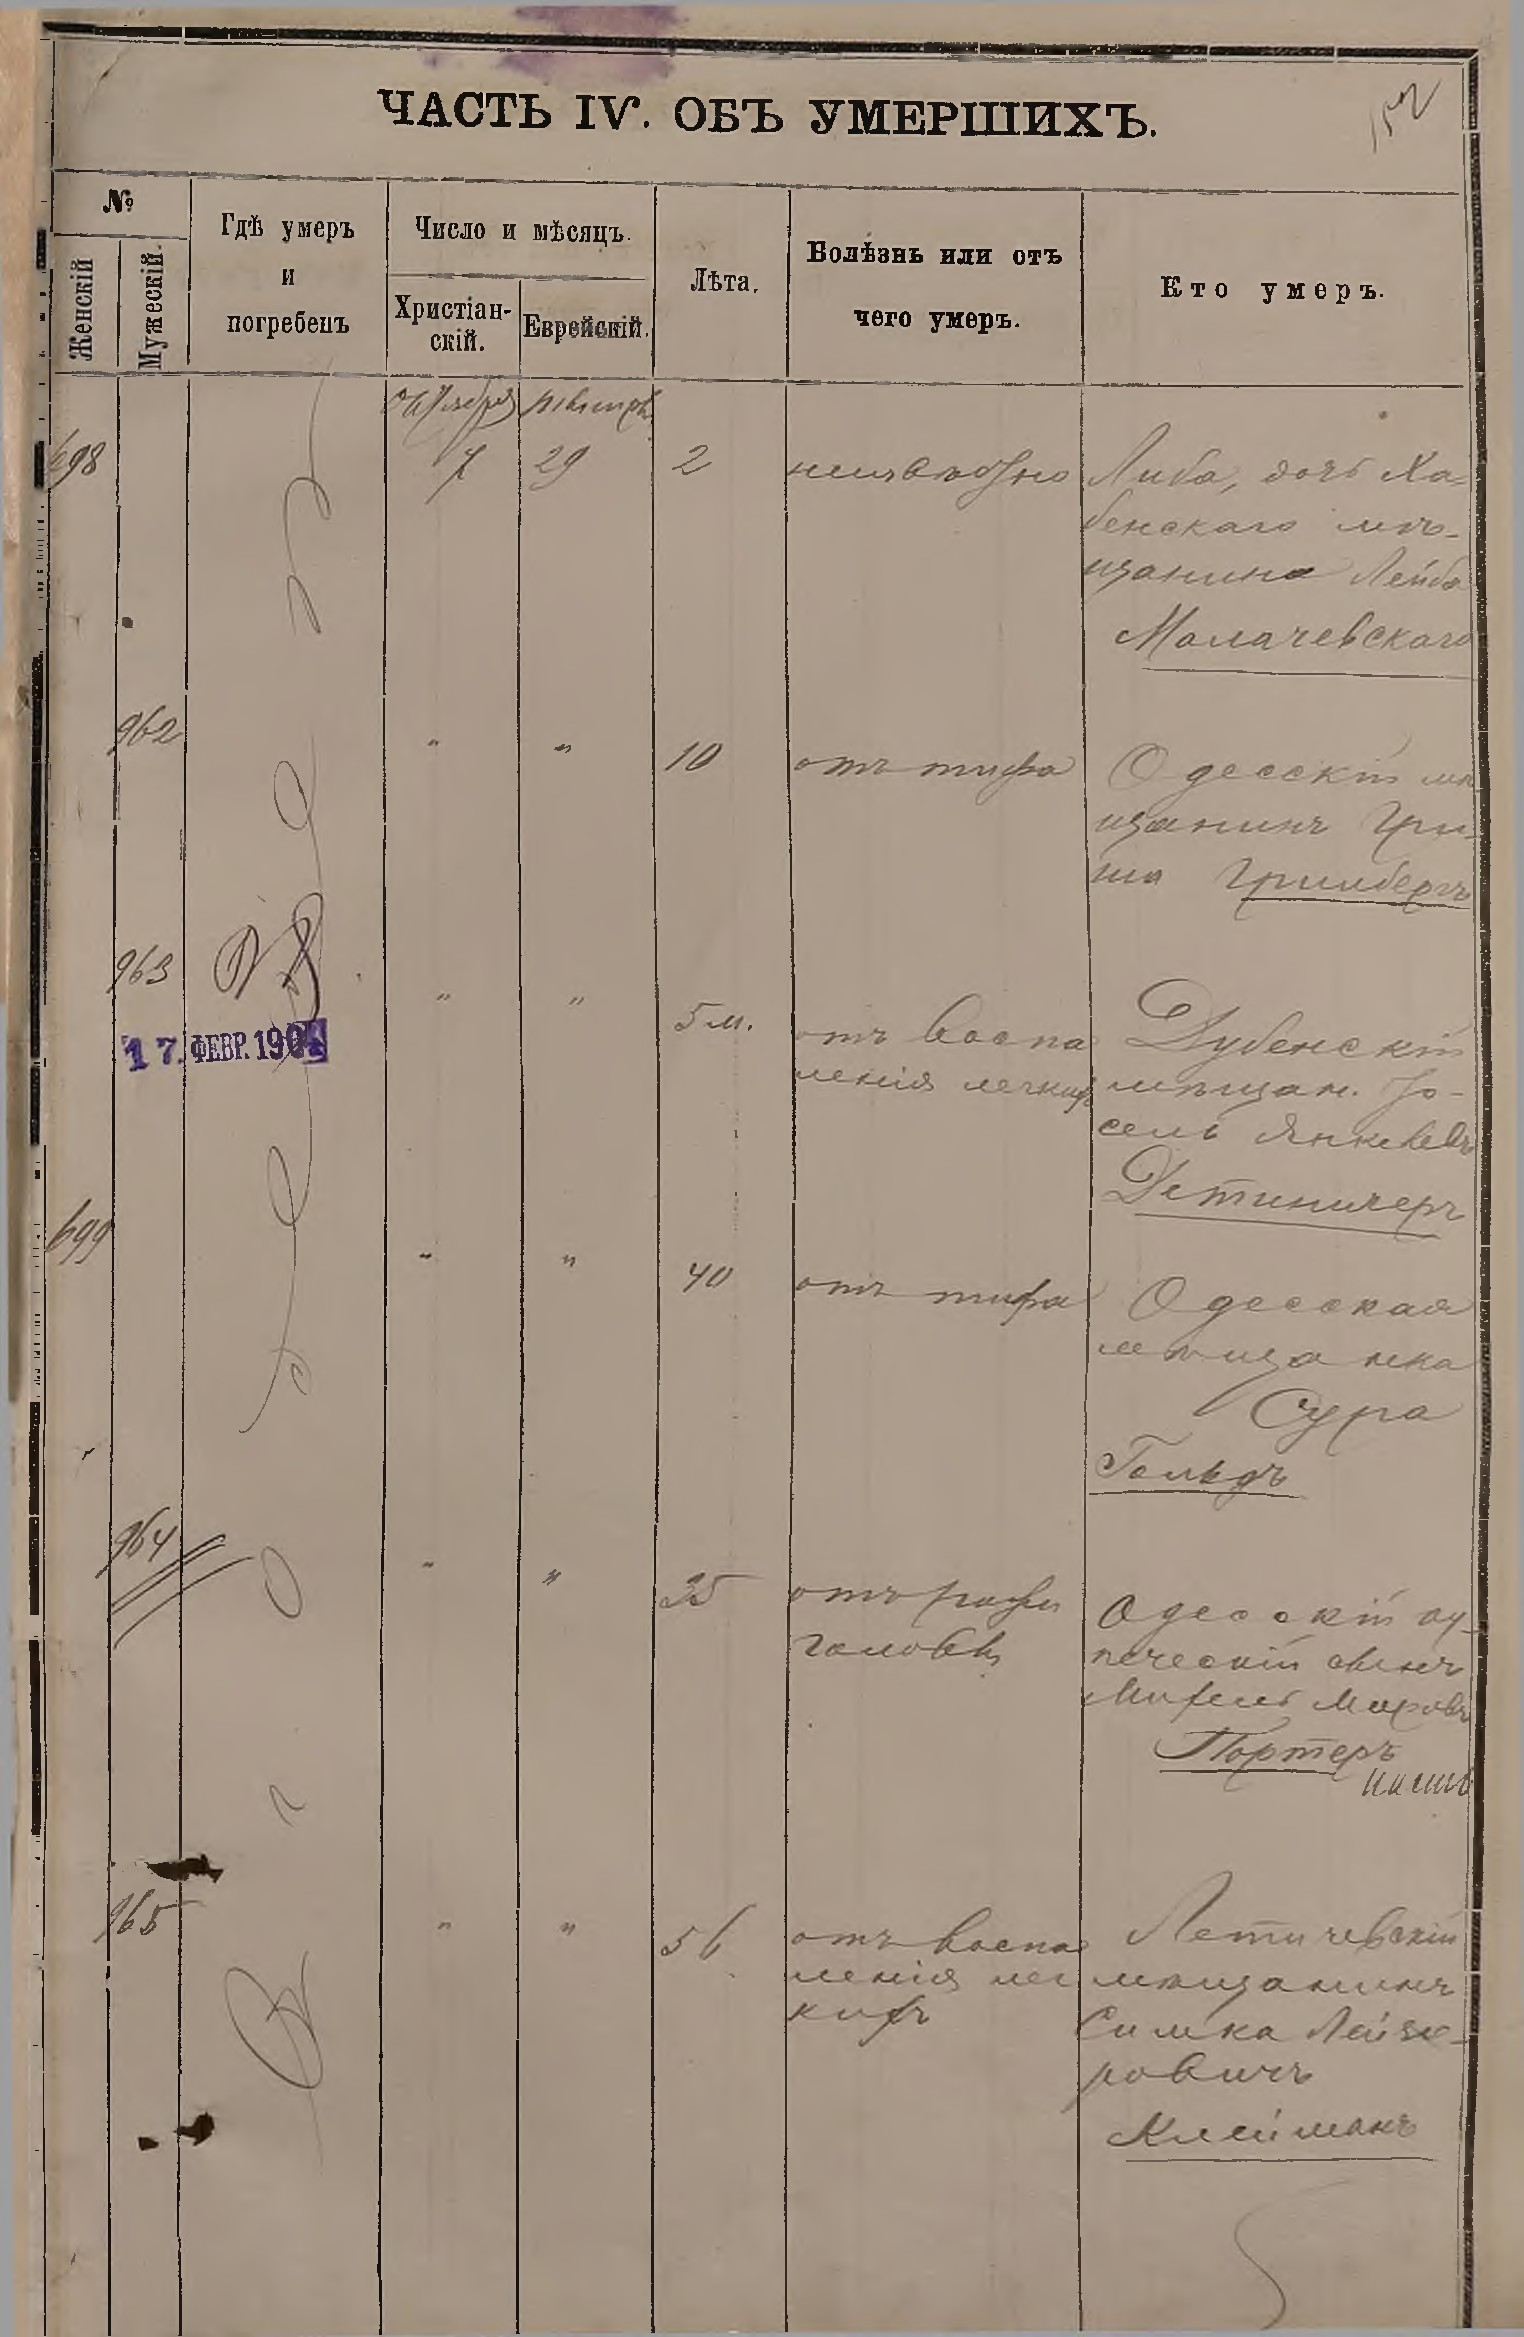 152
ЧАСТЬ IV. ОБЪ УМЕРШИХЪ.
№
Женскій
Мужескій.
Гдѣ умеръ
и
погребенъ
Число и мѣсяцъ.
Христіан-
скій.
Еврейскій.
Лѣта.
Болѣзнь или отъ
чего умеръ.
Кто умеръ.
Октября
698
7
29
2
неизвѣстно
Либа, дочь Ха-
бенскаго мѣ-
щанина Лейба
Малачевскаго
962
"
"
10
отъ тифа
Одесскій мѣ
щанинъ Гри-
ша Гринбергъ
963
"
"
5 м.
отъ воспа
ленія легкихъ
Дубенскій
мѣщан. Іо-
сель Янкелевъ
17. ФЕВР. 190
699
"
"
40
отъ тифа
Одесская
мѣщанка
Сура
Гольдъ
964
"
"
35
отъ рожи
головы
Одесскій ку-
печескій сынъ
Портеръ
965
"
"
56
отъ воспа
ленія лег
кихъ
Летичевскій
мѣщанинъ
Симха Лейзе-
ровичъ
Клейманъ
Одесса